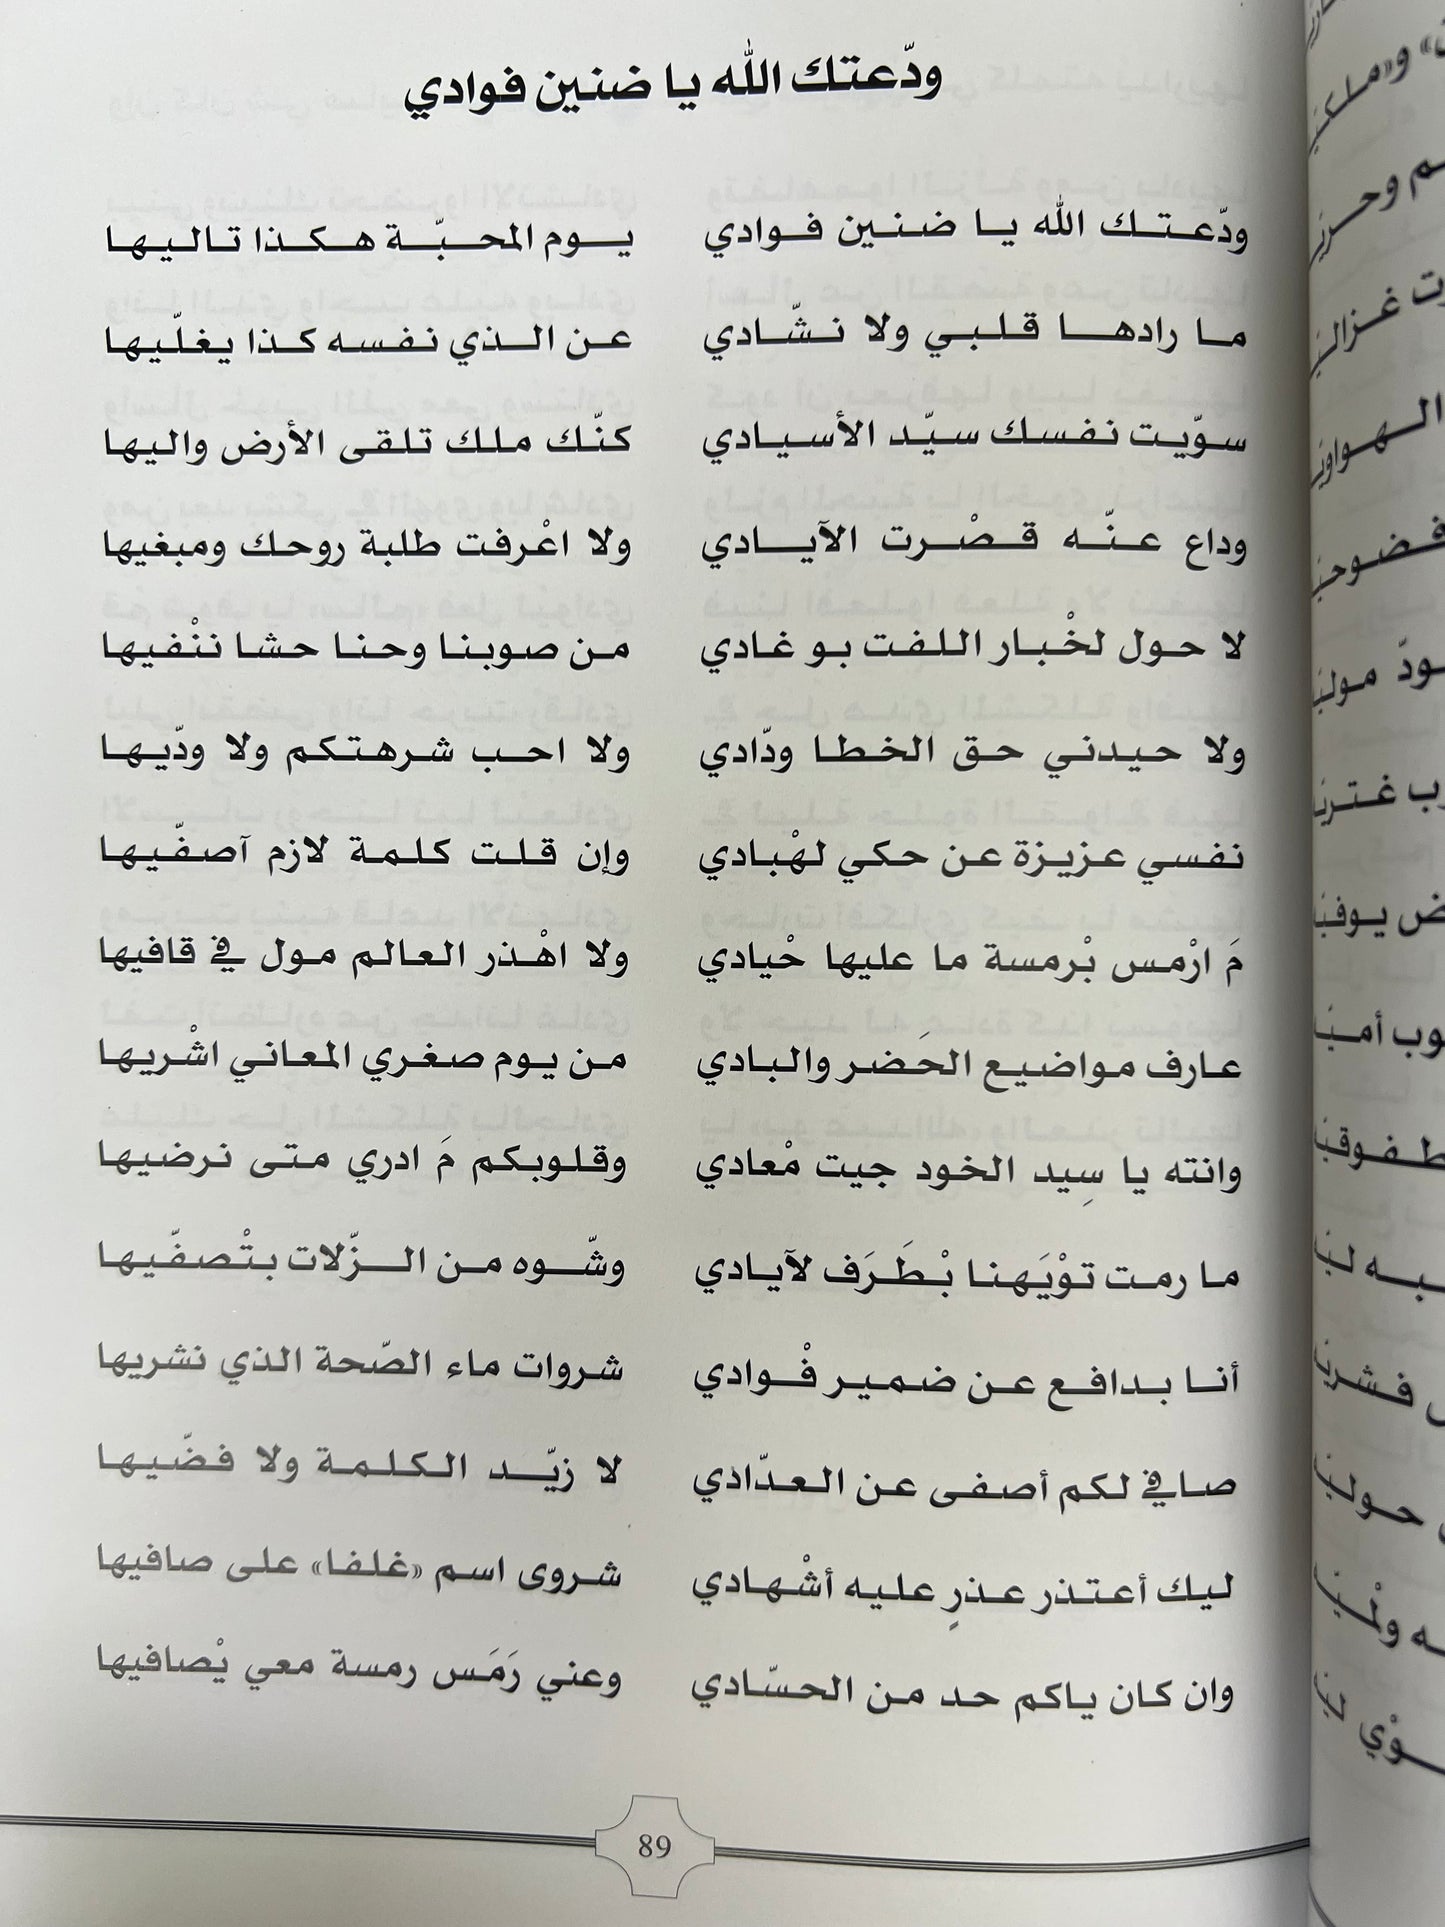 ودّعتك الله يا ضنين فوادي
ودّعتك الله يا ضنين فوادي يوم المحبّة هكذا تاليها
ما رادها قلبي ولا نشّادي عن الذي نفسه كذا يغلّيها
سوّيت نفسك سيّد الأسيادي كنّك ملك تلقى الأرض واليها
وداع عنّه قصْرت الآيادي ولا اعْرفت طلبة روحك ومبغيها
لا حول لخْبار اللفت بو غادي من صوبنا وحنا حشا ننْفيها
ولا حيدني حق الخطا ودّادي ولا احب شرهتكم ولا ودّيها
نفسي عزيزة عن حكي لهْبادي وإن قلت كلمة لازم آصفّيها
مَ ارْمس بْرمسة ما عليها حْيادي ولا اهْذر العالم مول في قافيها
عارف مواضيع الحَضر والبادي من يوم صغري المعاني اشْريها
وانته يا سِيد الخود جيت مْعادي وقلوبكم مَ ادري متى نرضيها
ما رمت توْيَهنا بْطَرَف لآيادي وشّوه من الزّلات بتْصفّيها
أنا بدافع عن ضمير فْوادي شروات ماء الصّحة الذي نشريها
صافي لكم أصفى عن العدّادي لا زيّد الكلمة ولا فضّيها
ليك أعتذر عذرٍ عليه أشْهادي شروى اسم «غلفا» على صافيها
وان كان ياكم حد من الحسّادي وعني رَمَس رمسة معي يْصافيها
89